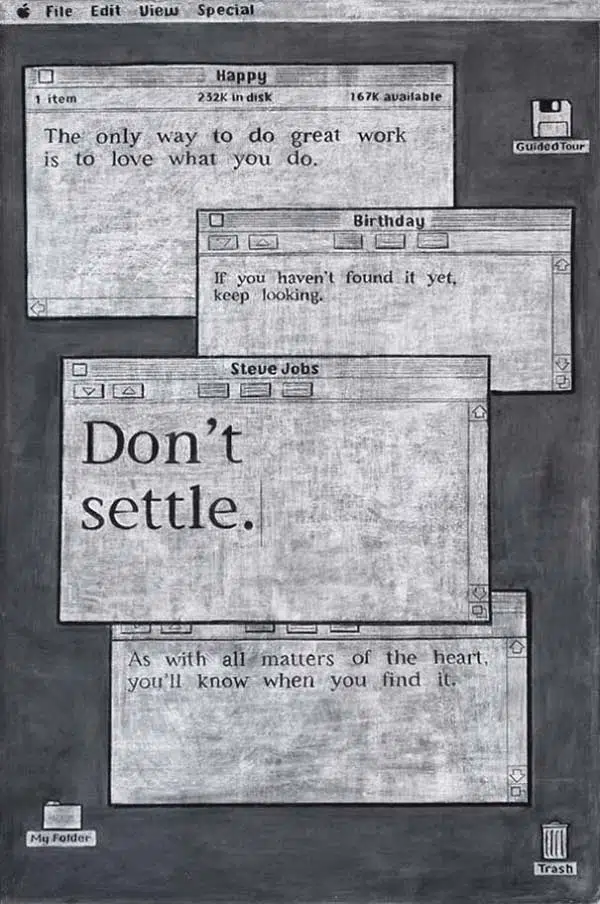 File Edit View Special
Happy
1 item 232K in disk 167K available
The only way to do great work
is to love what you do.
GuidedTour
Birthday
If you haven't found it yet,
keep looking.
Steve Jobs
Don't
settle.
As with all matters of the heart,
you'll know when you find it.
My Folder
Trash